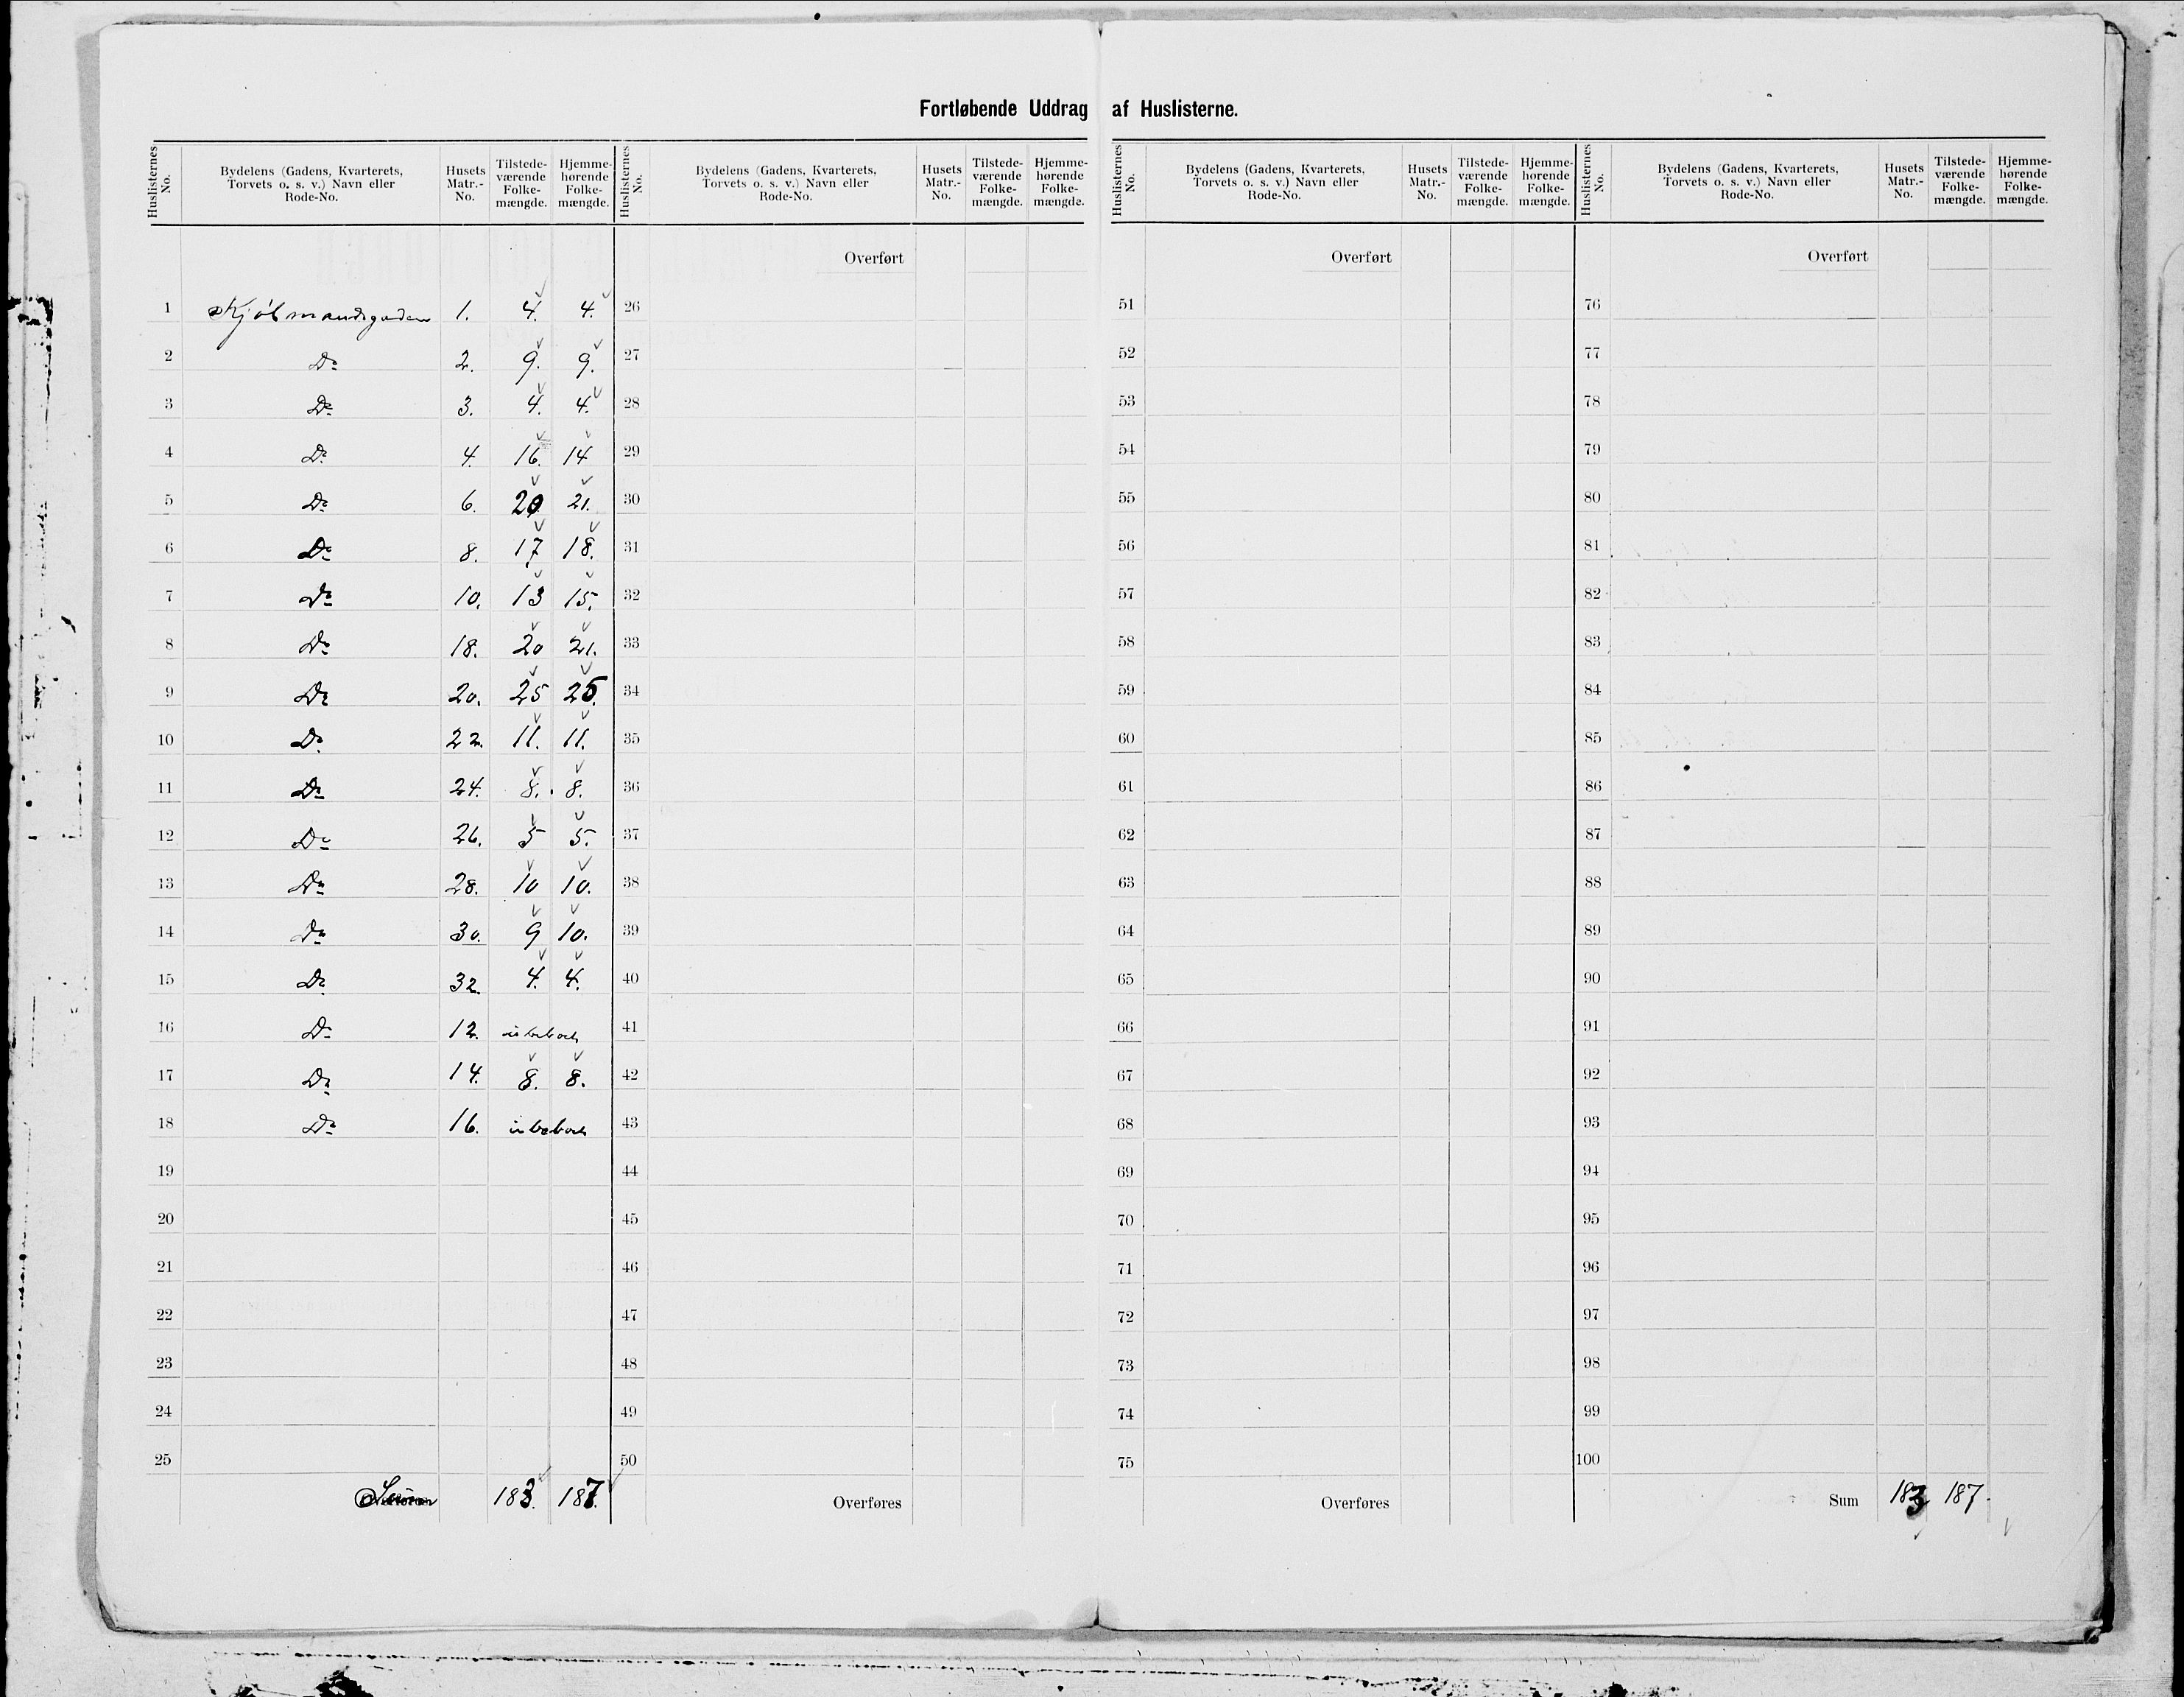 Fortløbende Uddrag af Huslisterne.
Huslisternes No. Bydelens (Gadens, Kvarterets, Torvets o. s. v.) Navn eller Rode-No. Husets Matr.-No. Tilstedeværende Folkemængde. Hjemmehørende Folkemængde.
1 Kjøbmandsgaden 1. 4. 4.
2 Do 2. 9. 9.
3 Do 3. 4. 4.
4 Do 4. 16. 14
5 Do 6. 20 21.
6 Do 8. 17 18.
7 Do 10. 13 15.
8 Do 18. 20 21.
9 Do 20. 25 25.
10 Do 22. 11. 11.
11 Do 24. 8. 8.
12 Do 26. 5 5.
13 Do 28. 10 10.
14 Do 30. 9 10.
15 Do 32. 4. 4.
16 Do 12. ubeboet
17 Do 14. 8. 8.
18 Do 16. ubeboet
19
20
21
22
23
24
25
Sum 183. 187.
Huslisternes No. Bydelens (Gadens, Kvarterets, Torvets o. s. v.) Navn eller Rode-No. Husets Matr.-No. Tilstedeværende Folkemængde. Hjemmehørende Folkemængde.
Overført
26
27
28
29
30
31
32
33
34
35
36
37
38
39
40
41
42
43
44
45
46
47
48
49
50
Overføres
Huslisternes No. Bydelens (Gadens, Kvarterets, Torvets o. s. v.) Navn eller Rode-No. Husets Matr.-No. Tilstedeværende Folkemængde. Hjemmehørende Folkemængde.
Overført
51
52
53
54
55
56
57
58
59
60
61
62
63
64
65
66
67
68
69
70
71
72
73
74
75
Overføres
Huslisternes No. Bydelens (Gadens, Kvarterets, Torvets o. s. v.) Navn eller Rode-No. Husets Matr.-No. Tilstedeværende Folkemængde. Hjemmehørende Folkemængde.
Overført
76
77
78
79
80
81
82
83
84
85
86
87
88
89
90
91
92
93
94
95
96
97
98
99
100
Sum 183 187.